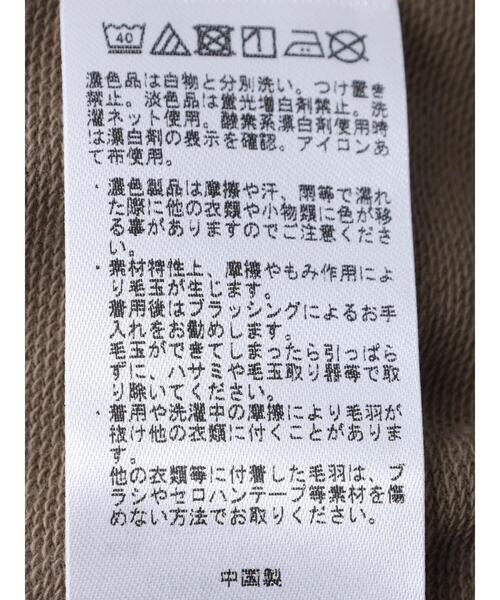 40
濃色品は白物と分別洗い。つけ置き
禁止。淡色品は蛍光増白剤禁止。洗
濯ネット使用。酸素系漂白剤使用時
は漂白剤の表示を確認。アイロンあ
て布使用。
・濃色製品は摩擦や汗、雨等で濡れ
た際に他の衣類や小物類に色が移
る事がありますのでご注意くださ
い。
・素材特性上、摩擦やもみ作用によ
り毛玉が生じます。
着用後はブラッシングによるお手
入れをお勧めします。
毛玉ができてしまったら引っぱら
ずに、ハサミや毛玉取り器等で取
り除いてください。
・着用や洗濯中の摩擦により毛羽が
抜け他の衣類に付くことがありま
す。
他の衣類等に付着した毛羽は、ブ
ラシやセロハンテープ等素材を傷
めない方法でお取りください。
中国製